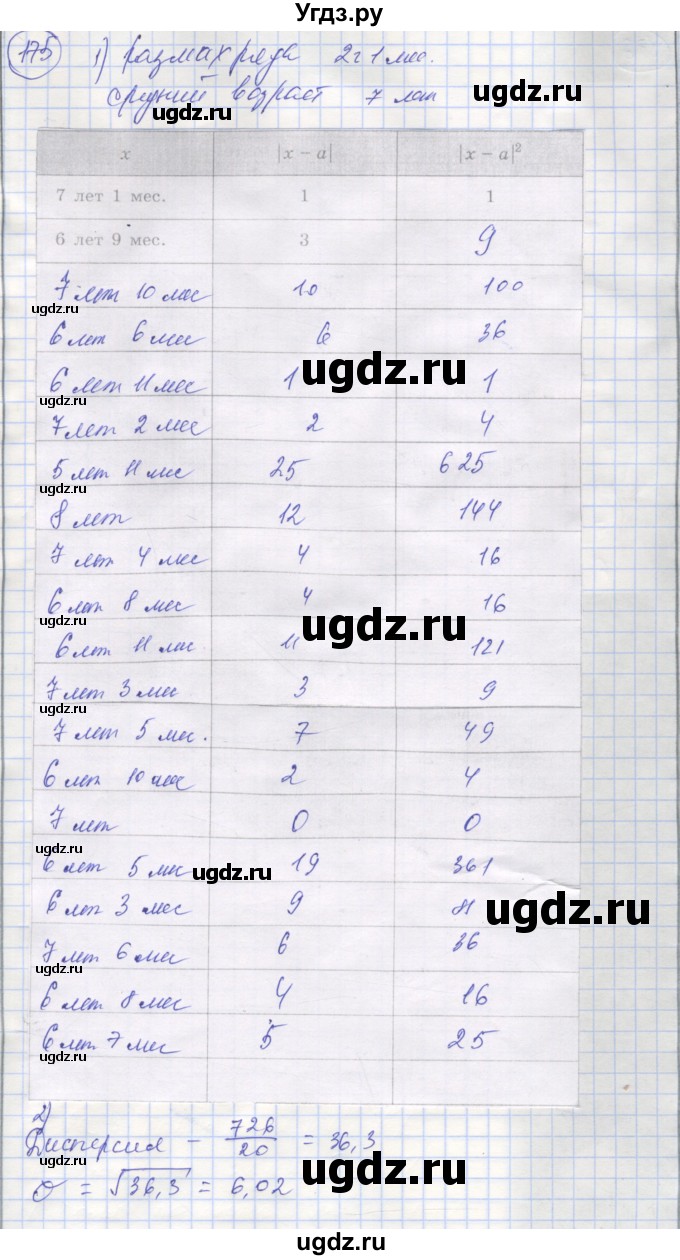 Угдз.ру
175 1) Размах ряда 2г 1 мес.
средний возраст 7 лет
ugdz.ru
ugdz.ru
x |x − a| |x − a|²
7 лет 1 мес. 1 1
6 лет 9 мес. 3 9
7 лет 10 мес 10 100
ugdz.ru
6 лет 6 мес 6 36
ugdz.ru
6 лет 11 мес 1 1
7 лет 2 мес 2 4
ugdz.ru
5 лет 11 мес 25 625
ugdz.ru
8 лет 12 144
7 лет 4 мес 4 16
6 лет 8 мес 4 16
ugdz.ru
ugdz.ru
6 лет 11 мес 11 121
7 лет 3 мес 3 9
7 лет 5 мес. 7 49
6 лет 10 мес 2 4
7 лет 0 0
ugdz.ru
6 лет 5 мес 19 361
ugdz.ru
6 лет 3 мес 9 81
ugdz.ru
7 лет 6 мес 6 36
ugdz.ru
6 лет 8 мес 4 16
6 лет 7 мес 5 25
ugdz.ru
2)
Дисперсия − 726/20 = 36,3
ugdz.ru
σ = √36,3 = 6,02